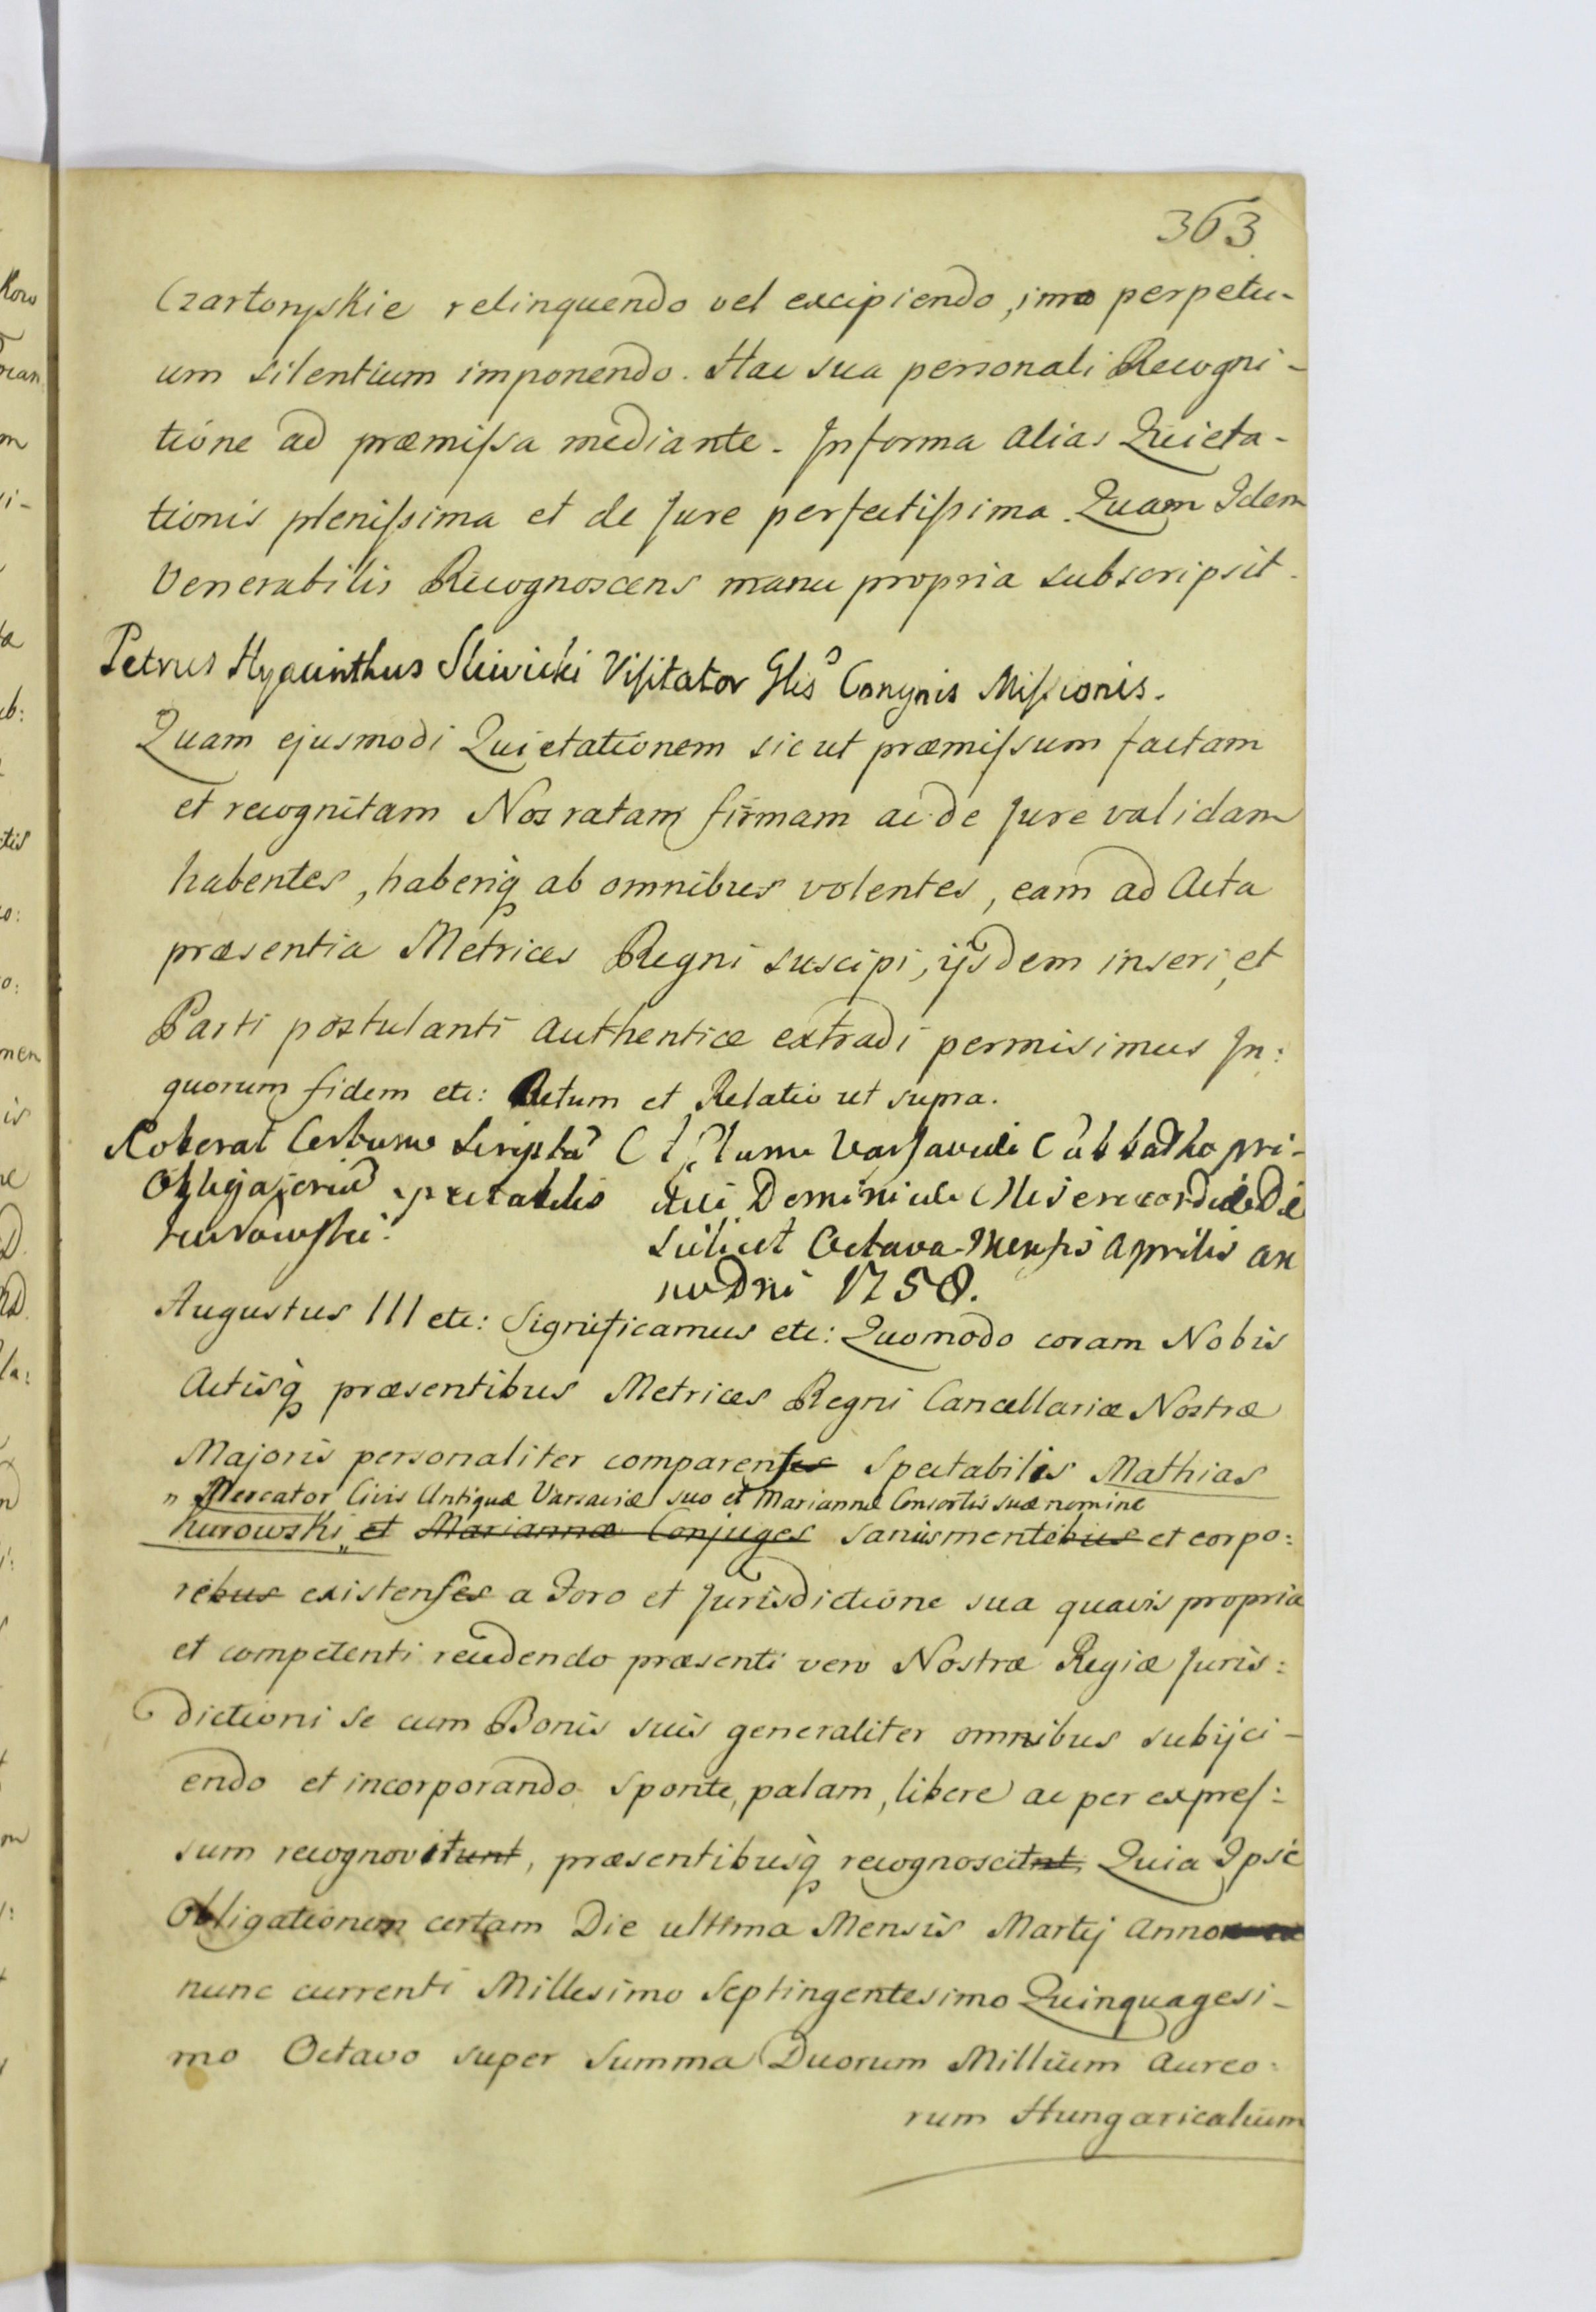 363.
Czartoryskie relinquendo vel excipiendo, imo perpetu-
um silentium imponendo. Hac sua personali Recogni-
tione ad præmissa mediante. In forma alias Quieta-
tionis plenissima et de Jure perfectissima. Quam Idem
Venerabilis Recognoscens manu propria subscripsit.
Petrus Hyacinthus Sliwicki Visitator Glis Congnis Missionis.
Quam ejusmodi Quietationem sic ut præmissum factam
et recognitam Nos ratam firmam ac de Jure validam
habentes, haberiq ab omnibus volentes, eam ad Acta
præsentia Metrices Regni suscipi, ijsdem inseri, et
Parti postulanti authentice extradi permisimus In:
quorum fidem etc: Actum et Relatio ut supra.
Roborat
Obligatoriu spectabilis
Kurowski.
Actum Varsaviæ Sabbatho pri-
die Dominicæ Misericordiæ Di
scilicet Octava Mensis Aprilis an
no Dni 1758.
Augustus III etc: Significamus etc: Quomodo coram Nobis
Actisq præsentibus Metrices Regni Cancellariæ Nostræ
Majoris personaliter comparentes Spectabilis Mathias
" Mercator Civis Antiquæ Varsaviæ suo et Mariannæ Consortis suæ nomine
Kurowski " et Mariannæ Conjuges sanis mentibus et corpo:
ribus existentes a Foro et Jurisdictione sua quavis propria
et competenti recedendo præsenti vero Nostræ Regiæ Juris:
dictioni se cum Bonis suis generaliter omnibus subijci-
endo et incorporando sponte, palam, libere ac per expres:
sum recognovitunt, præsentibusq recognoscitnt, Quia Ipse
Obligationem certam Die ultima Mensis Martij Anno
nunc currenti Millesimo Septingentesimo Quinquagesi-
mo Octavo super Summa Duorum Millium Aureo:
rum Hungaricalium